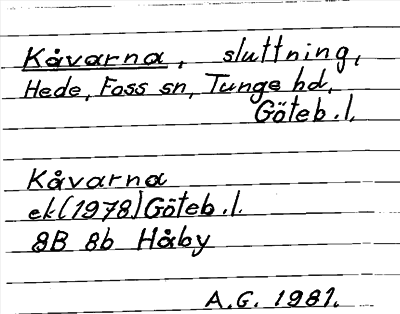 Kåvarna, sluttning,
Hede, Foss sn, Tunge hd,
Göteb.l,
Kåvarna
ek(1978)Göteb.l.
8B 8b Håby
A.G. 1981.